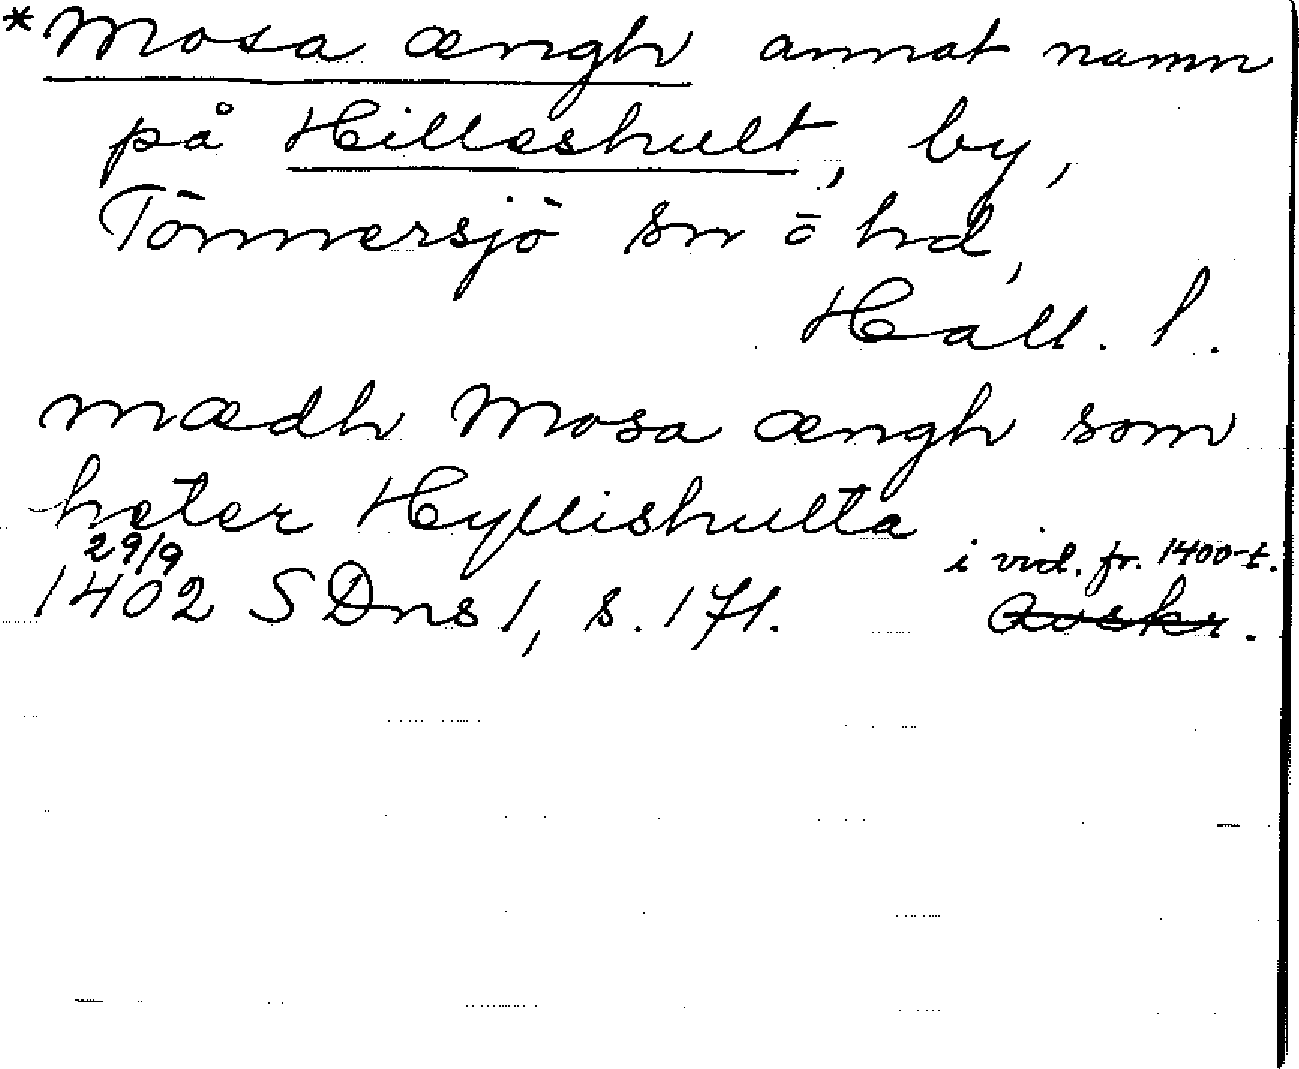 *Mosa ængh annat namn
på Hilleshult, by,
Tönnersjö sn o hd,
Hall. l.
mædh Mosa ængh som
heter Hyllishulta
29/9 i vid. fr. 1400-t.
1402 SDns 1, s. 171. Avskr.